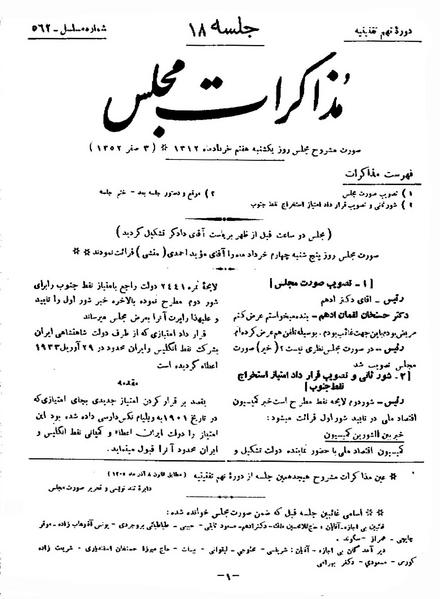 دورهٔ نهم تقنینیه
جلسه ۱۸
شماره مسلسل - ۵۶۲
مذاکرات مجلس
صورت مشروح مجلس روز یکشنبه هفتم خرداد ماه ۱۳۱۲ * (۳ صفر ۱۳۵۲)
فهرست مذاکرات
۱) تصویب صورت مجلس
۲) شور ثانی و تصویب قرار داد امتیاز استخراج نفط جنوب
۳) موقع و دستور جلسه بعد - ختم جلسه
(مجلس دو ساعت قبل از ظهر بریاست آقای دادگر تشکیل گردید)
صورت مجلس روز پنج شنبه چهارم خرداد ماه را آقای مؤید احمدی (منشی) قرائت نمودند
[۱- تصویب صورت مجلس]
رئیس - آقای دکتر ادهم
دکتر حسنخان لقمان ادهم - بنده میخواستم عرض کنم
مریض بودم باین جهت غایب بودم. بوسیله تلفن هم عرض کرده‌ام
رئیس - در صورت مجلس نظری نیست؟ (خیر) صورت
مجلس تصویب شد
[۲- شور ثانی و تصویب قرار داد امتیاز استخراج
نفط جنوب]
رئیس - شور دوم لایحه نفط مطرح است خبر کمیسیون
اقتصاد ملی در تایید شور اول قرائت میشود:
خبر بین الشورین کمیسیون
کمیسیون اقتصاد ملی با حضور نماینده دولت تشکیل و
لایحهٔ نمره ۲۴۴۱ دولت راجع بامتیاز نفط جنوب را برای
شور دوم مطرح نموده بالاخره خبر شور اول را تایید
و علیهذا راپرت آنرا بعرض مجلس میرساند
قرار داد امتیازی که از طرف دولت شاهنشاهی ایران
بشرکت نفط انگلیس و ایران محدود در ۲۹ آوریل ۱۹۳۳
اعطاء گردیده است
مقدمه
بقصد بر قرار کردن امتیاز جدیدی بجای امتیازی که
در تاریخ ۱۹۰۱ به ویلیام نکس دارسی داده شده بود این
امتیاز را دولت ایران اعطاء و کمپانی نفط انگلیس و
ایران محدود آنرا قبول مینماید.
* عین مذاکرات مشروح هیجدهمین جلسه از دورهٔ نهم تقنینیه (مطابق قانون ۸ آذر ماه ۱۳۰۵)
دایرهٔ تند نویسی و تحریر صورت مجلس
* اسامی غائبین جلسه قبل که ضمن صورت مجلس خوانده شده:
غائبین بی اجازه - آقایان: - دکتر ادهم - مسعود ثابتی - حبیبی - طباطبائی بروجردی - یونس آقا وهاب زاده - موقر
دیر آمد گان بی اجازه - آقایان: شریفی - مخبری - لیقوانی - بیات - حاج میرزا حسنخان اسفندیاری - شریعت زاده
کورس - مسعودی - دکتر بهرامی
-۱-